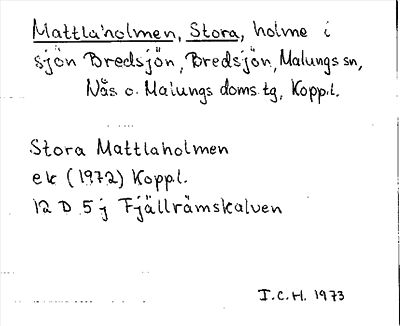 Mattlaholmen, Stora, holme i
sjön Bredsjön, Bredsjön, Malungs sn,
Nås o. Malungs doms.tg, Koppl.
Stora Mattlaholmen
ek (1972) Koppl.
12 D 5 j Fjällrämskalven
I.C.H. 1973